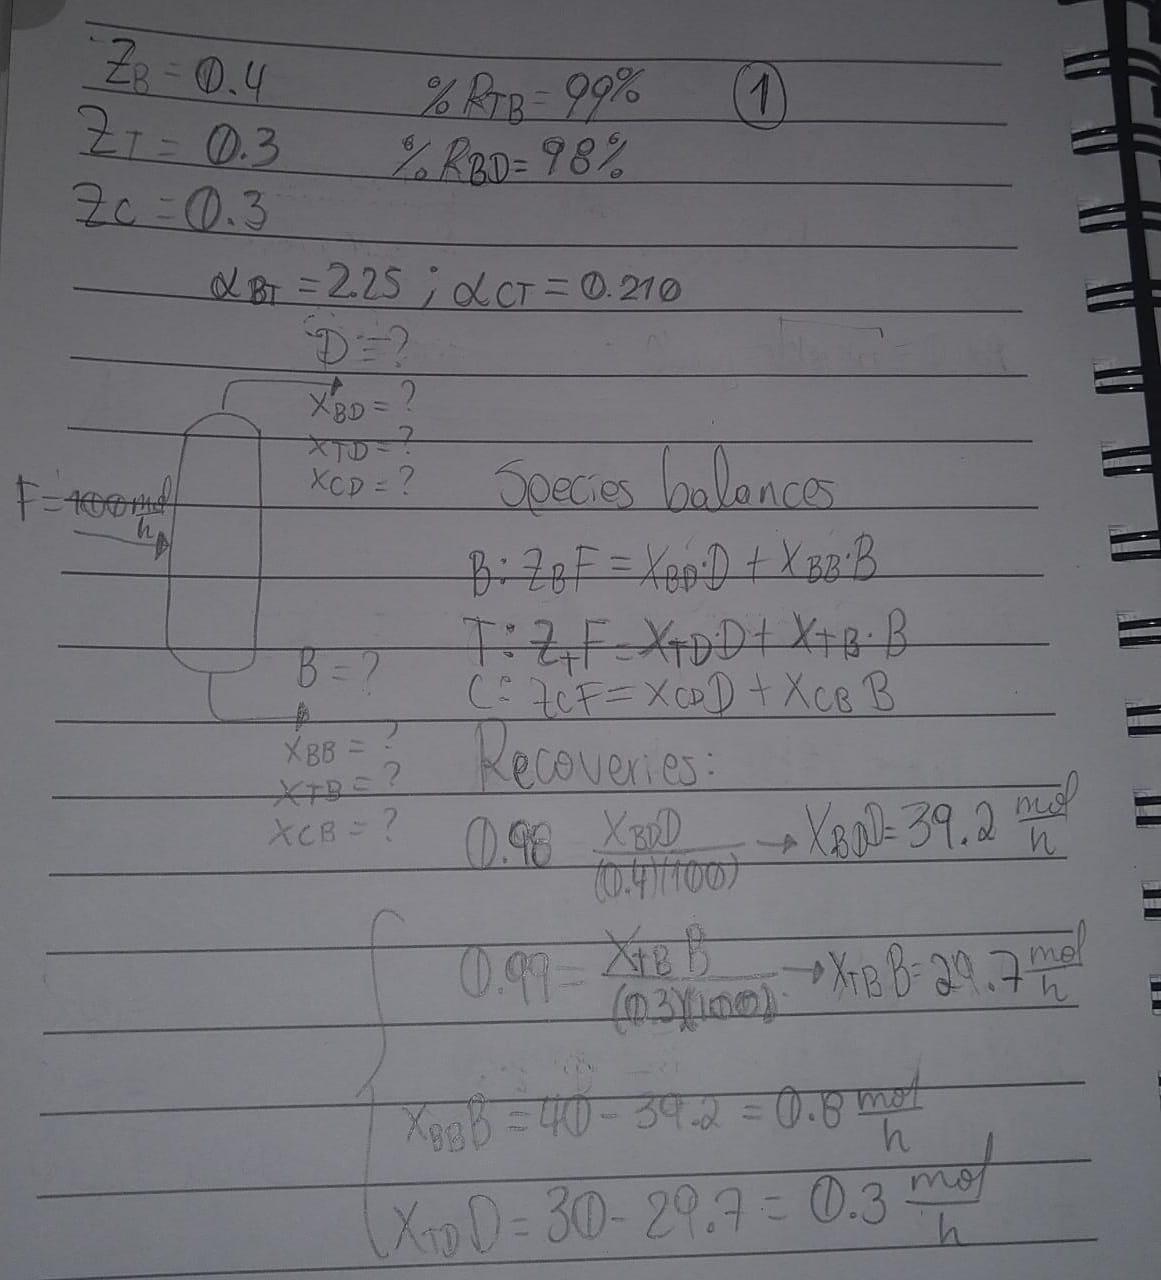 Z_B = 0.4 % R_TB = 99% ①
Z_T = 0.3 % R_BD = 98%
Z_C = 0.3
α_BT = 2.25 ; α_CT = 0.210
D = ?
X_BD = ?
X_TD = ?
X_CD = ?
F = 100 mol/h
Species balances
B: Z_B F = X_BD · D + X_BB · B
T: Z_T F = X_TD D + X_TB · B
C: Z_C F = X_CD D + X_CB B
B = ?
X_BB = ?
X_TB = ?
X_CB = ?
Recoveries:
0.98 X_BD D / (0.4)(100) → X_BD D = 39.2 mol/h
0.99 = X_TB B / (0.3)(100) → X_TB B = 29.7 mol/h
X_BB B = 40 - 39.2 = 0.8 mol/h
X_TD D = 30 - 29.7 = 0.3 mol/h